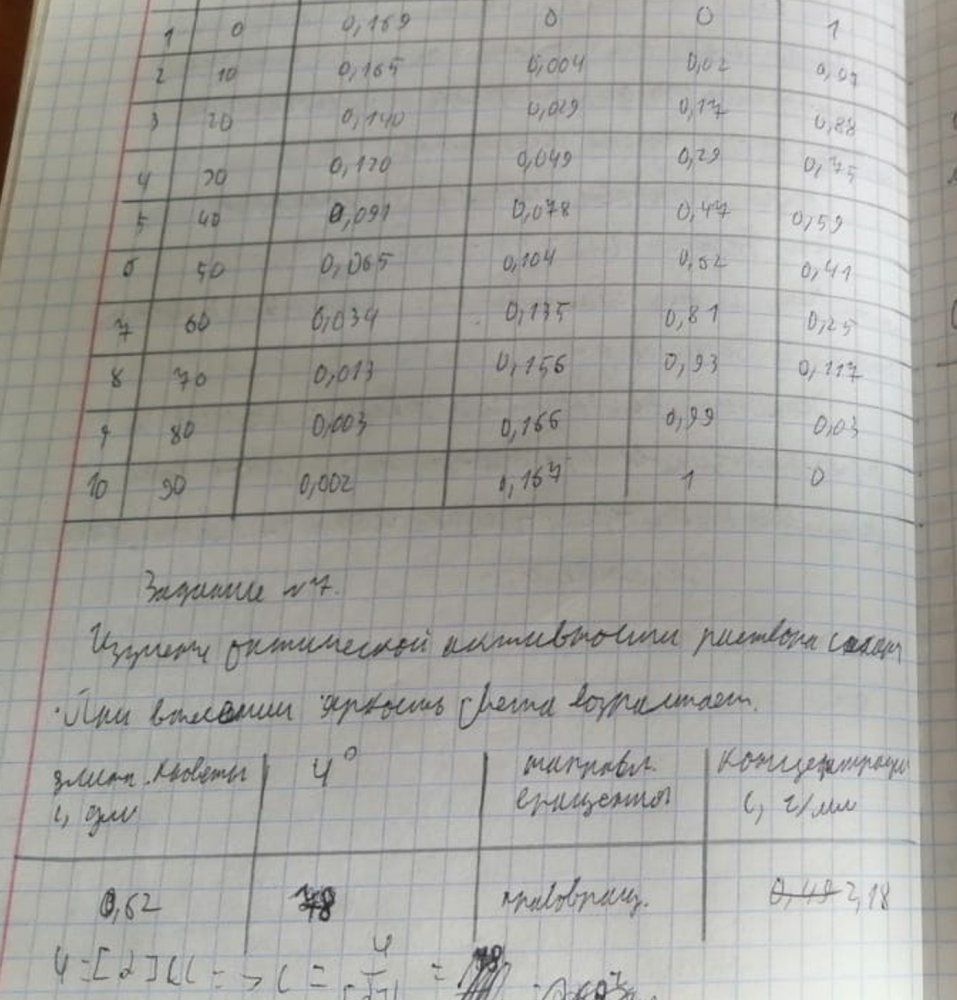 1 0 0,169 0 0 1
2 10 0,165 0,004 0,02 0,97
3 20 0,140 0,029 0,17 0,88
4 30 0,120 0,049 0,29 0,75
5 40 0,091 0,078 0,47 0,59
6 50 0,065 0,104 0,62 0,41
7 60 0,034 0,135 0,81 0,25
8 70 0,013 0,156 0,93 0,117
9 80 0,003 0,166 0,99 0,03
10 90 0,002 0,167 1 0
Задание №7.
Изучение оптической активности раствора сахара
При включении яркость света возрастает.
длина кюветы φ° направл. концентрация
l, дм вращения C, г/мл
0,62 78 правовращ. 0,49 2,18
φ = [α] l C => C =